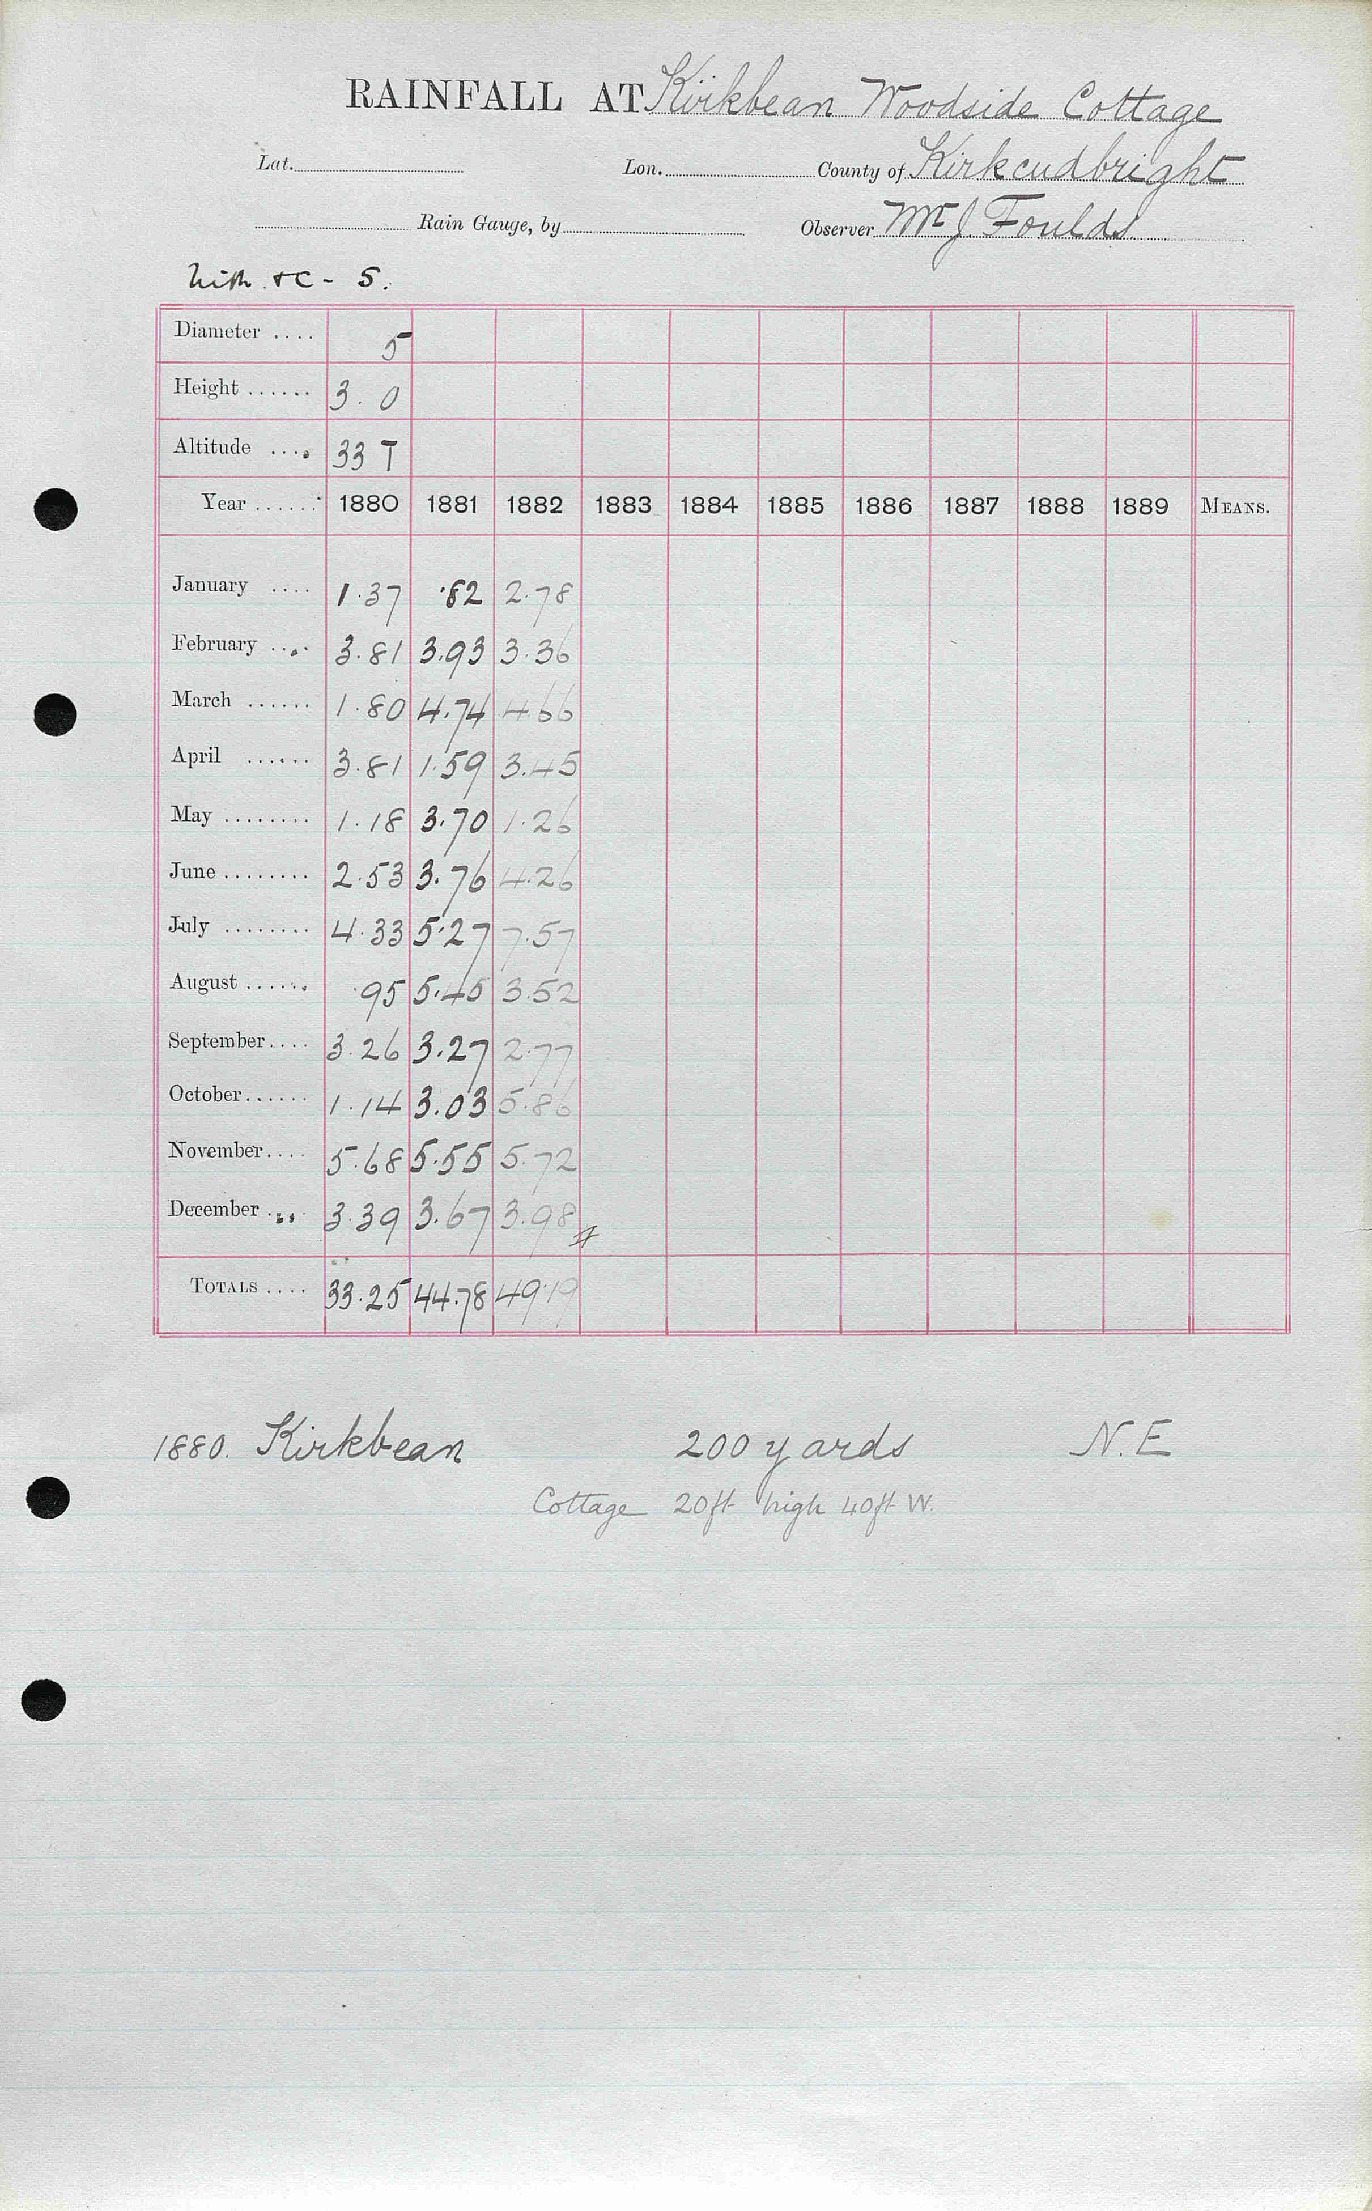 RAINFALL AT Kirkbean Woodside Cottage
Lat. Lon. County of Kirkcudbright
Rain Gauge, by Observer Mr J Foulds
Nith &c - 5.
Diameter .... 5
Height ...... 3.0
Altitude .... 33 T
Year ...... 1880 1881 1882 1883 1884 1885 1886 1887 1888 1889 MEANS.
January .... 1.37 .82 2.78
February .... 3.81 3.93 3.36
March ...... 1.80 4.74 4.66
April ...... 3.81 1.59 3.45
May ........ 1.18 3.70 1.26
June ........ 2.53 3.76 4.26
July ........ 4.33 5.27 7.57
August ...... .95 5.45 3.52
September .... 3.26 3.27 2.77
October ...... 1.14 3.03 5.86
November .... 5.68 5.55 5.72
December .... 3.39 3.67 3.98 #
TOTALS .... 33.25 44.78 49.19
1880. Kirkbean 200 yards N.E
Cottage 20ft high 40ft W.